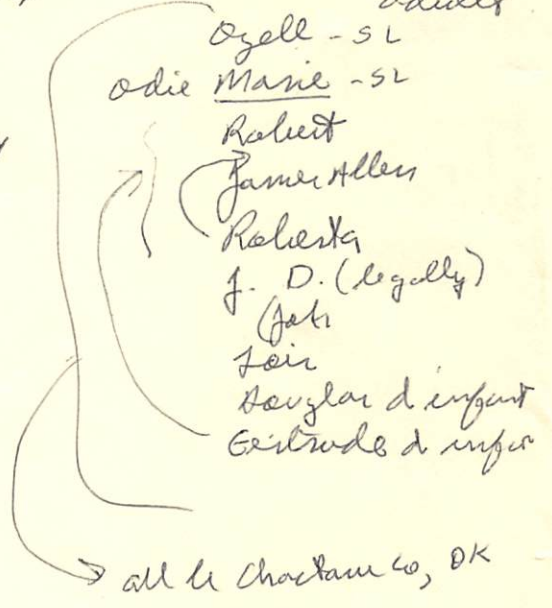 adults
Ozell - SL
Odie Marie - SL
Robert
James Allen
Roberta
J. D. (legally)
Lois
Douglas d infant
Gertrude d infan
all Choctaw Co, OK